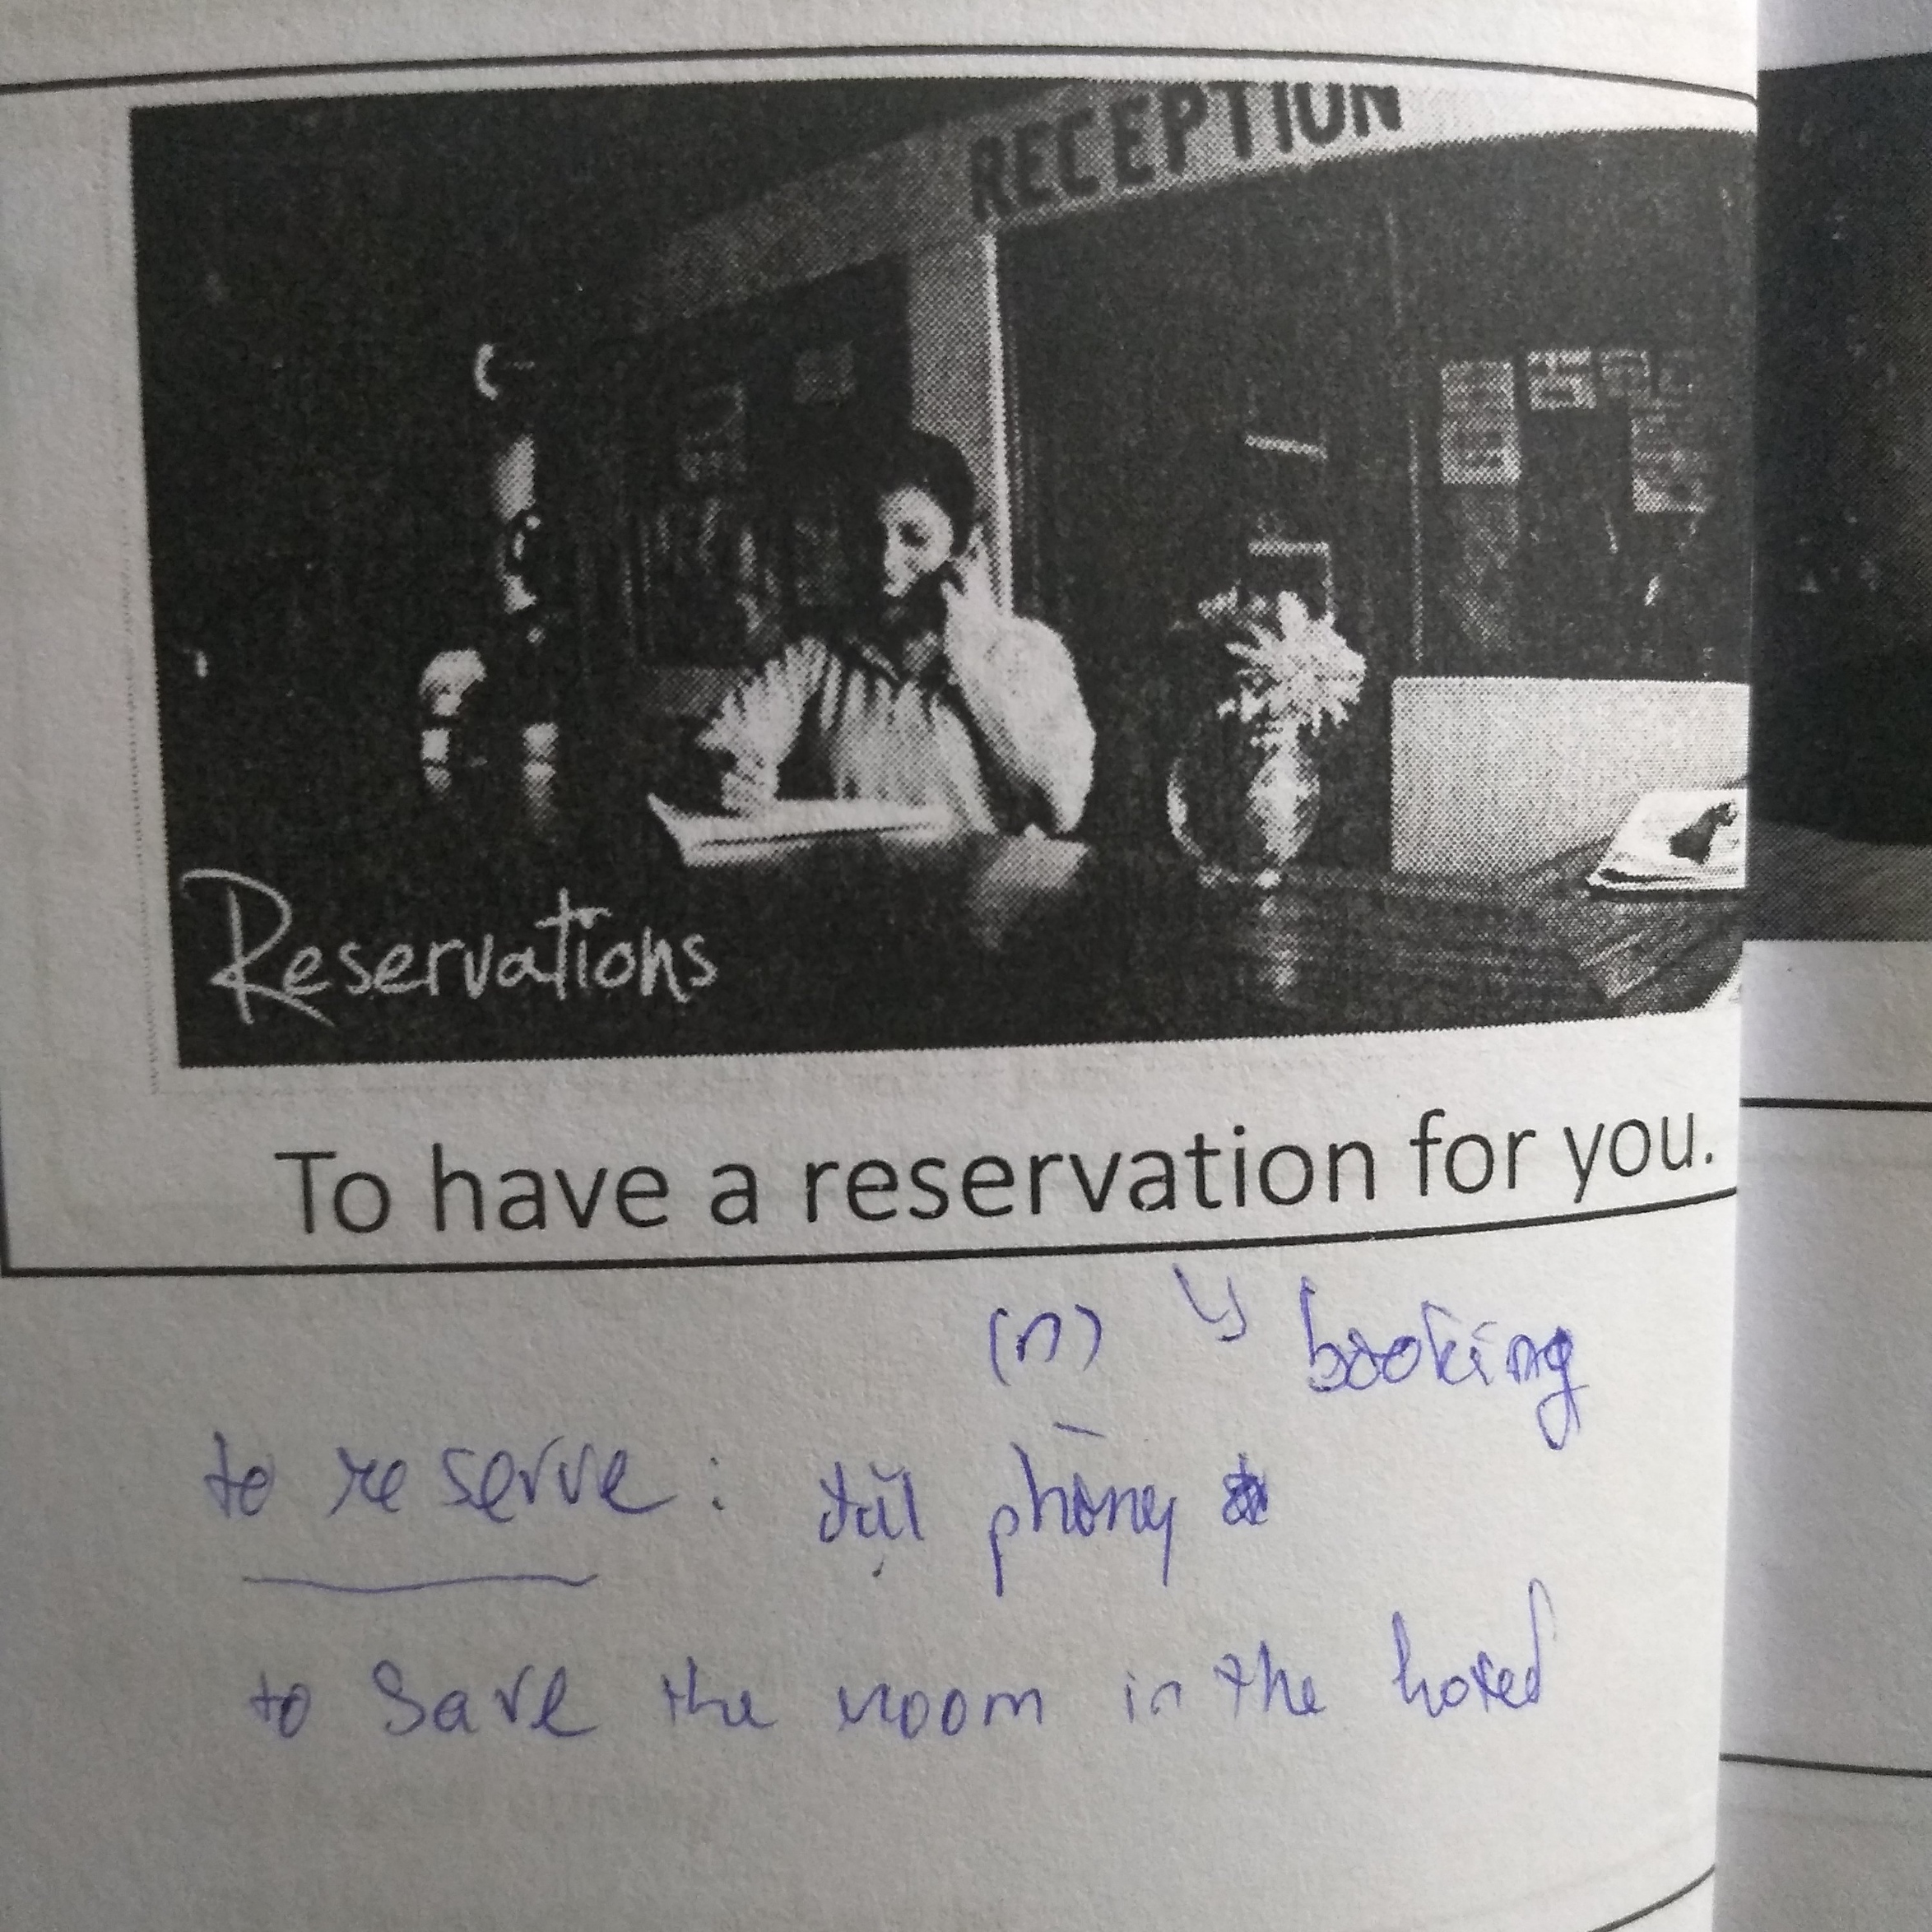 RECEPTION
Reservations
To have a reservation for you.
(n) ↳ booking
to reserve : đặt phòng
to save the room in the hotel